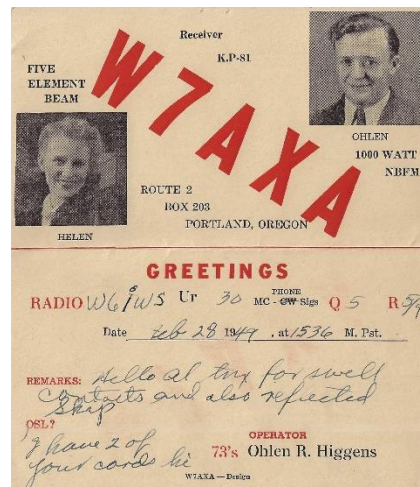 Receiver
K.P-81
FIVE
ELEMENT
BEAM
W7AXA
OHLEN
1000 WATT
NBFM
HELEN
ROUTE 2
BOX 203
PORTLAND, OREGON
GREETINGS
RADIO W6IWS Ur 30 MC - PHONE CW Sigs Q 5 R 5/9
Date Feb 28 1949 . at 1536 M. Pst.
REMARKS: Hello Al tnx for swell
contacts and also
QSL?
I have 2 of
your cards hi
OPERATOR
73's Ohlen R. Higgens
W7AXA — Design